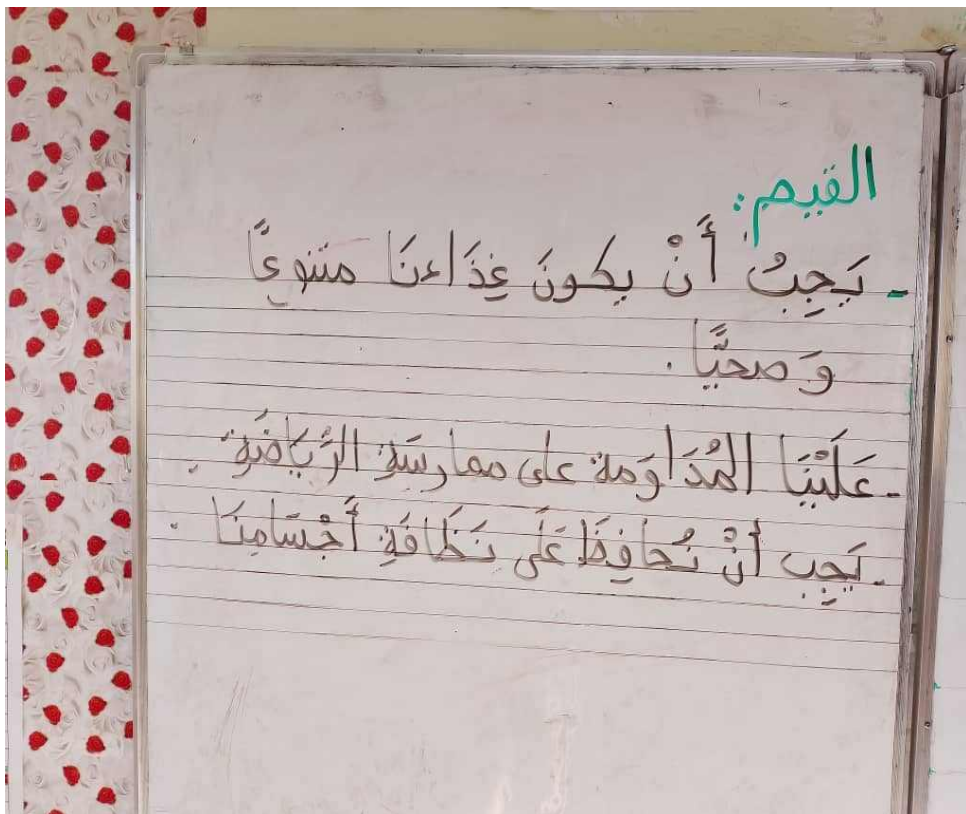 القيم:
- يَجِبُ أَنْ يكونَ غِذَاءنَا متنوعًا
وَصحيًّا.
- عَلَيْنَا المُدَاوَمة على ممارسَةِ الرِّيَاضَةِ.
- يَجِب أَنْ نُحافِظَ عَلَى نَظَافَةِ أَجْسَامِنَا.